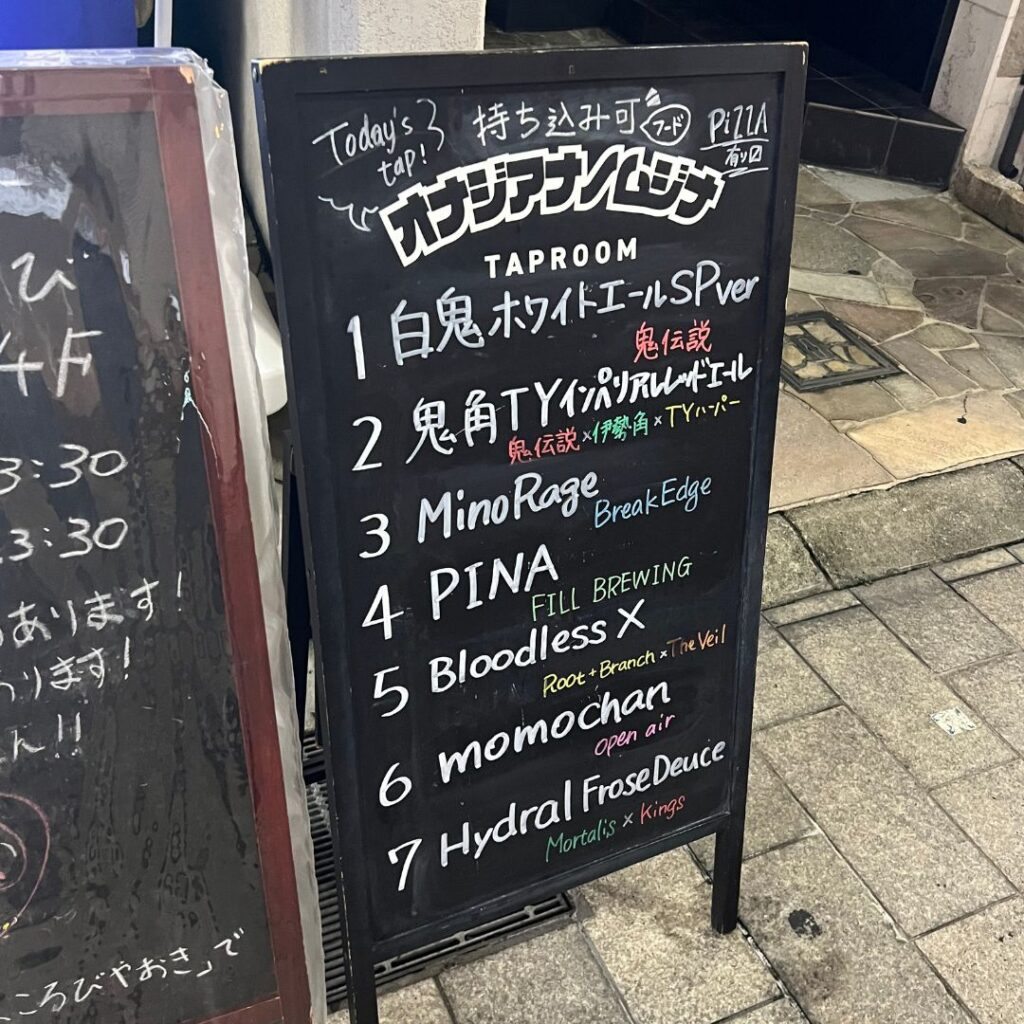 び
3:30
3:30
あります!
ります!
ん!!
ころびやおき」で
Today's tap!
持ち込み可 フード
PiZZA 有り□
オナジアナノムジナ
TAPROOM
1 白鬼 ホワイトエールSPver
鬼伝説
2 鬼角TYインパリアルレッドエール
鬼伝説×伊勢角×TYハーバー
3 MinoRage
BreakEdge
4 PINA
FILL BREWING
5 Bloodless X
Root+Branch×The Veil
6 momochan
open air
7 Hydral FroseDeuce
Mortalis × Kings